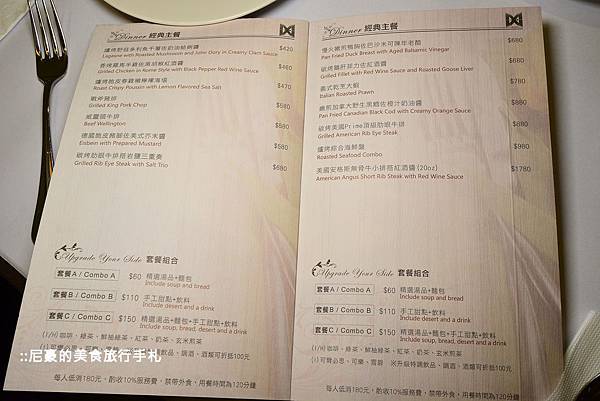 Dinner 經典主餐
爐烤野菇多利魚千層佐奶油蛤蜊醬 $420
Lagsane with Roasted Mushroom and John Dory in Creamy Clam Sauce
香烤羅馬半雞佐黑胡椒紅酒醬 $480
Grilled Chicken in Rome Style with Black Pepper Red Wine Sauce
爐烤脆皮春雞檸檬海鹽 $470
Roast Crispy Poussin with Lemon Flavored Sea Salt
戰斧豬排 $580
Grilled King Pork Chop
威靈頓牛排 $880
Beef Wellington
德國脆皮豬腳佐美式芥末醬 $580
Eisbein with Prepared Mustard
碳烤肋眼牛排搭岩鹽三重奏 $680
Grilled Rib Eye Steak with Salt Trio
Upgrade Your Side 套餐組合
套餐A / Combo A $60 精選湯品+麵包
Include soup and bread
套餐B / Combo B $110 手工甜點+飲料
Include desert and a drink
套餐C / Combo C $150 精選湯品+麵包+手工甜點+飲料
Include soup, bread, desert and a drink
(I/H)咖啡、綠茶、鮮柚綠茶、紅茶、奶茶、玄米煎茶
每人低消180元，酌收10%服務費，禁帶外食，用餐時間為120分鐘
Dinner 經典主餐
慢火嫩煎鴨胸佐巴沙米可陳年老醋 $680
Pan Fried Duck Breast with Aged Balsamic Vinegar
碳烤鵝肝菲力佐紅酒醬 $680
Grilled Fillet with Red Wine Sauce and Roasted Goose Liver
義式乾烹大蝦 $780
Italian Roasted Prawn
嫩煎加拿大野生黑鱈佐橙汁奶油醬 $880
Pan Fried Canadian Black Cod with Creamy Orange Sauce
碳烤美國Prime頂級肋眼牛排 $880
Grilled American Rib Eye Steak
爐烤綜合海鮮盤 $980
Roasted Seafood Combo
美國安格斯無骨牛小排搭紅酒醬(20oz) $1780
American Angus Short Rib Steak with Red Wine Sauce
Upgrade Your Side 套餐組合
套餐A / Combo A $60 精選湯品+麵包
Include soup and bread
套餐B / Combo B $110 手工甜點+飲料
Include desert and a drink
套餐C / Combo C $150 精選湯品+麵包+手工甜點+飲料
Include soup, bread, desert and a drink
(I/H)咖啡、綠茶、鮮柚綠茶、紅茶、奶茶、玄米煎茶
(I)可爾必思、可樂、雪碧 ※升級特調飲品、調酒、酒類可折抵100元
每人低消180元，酌收10%服務費，禁帶外食，用餐時間為120分鐘
::尼豪的美食旅行手札